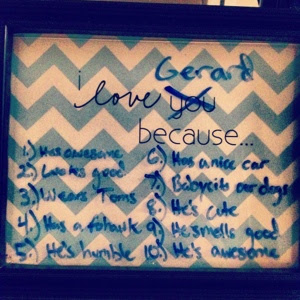 Gerard
i love you
because...
1.) Has awesome
2.) Looks good
3.) Wears Toms
4.) Has a fohawk
5.) He's humble
6.) Has a nice car
7.) Babycits our dogs
8.) He's cute
9.) He smells good
10.) He's awesome